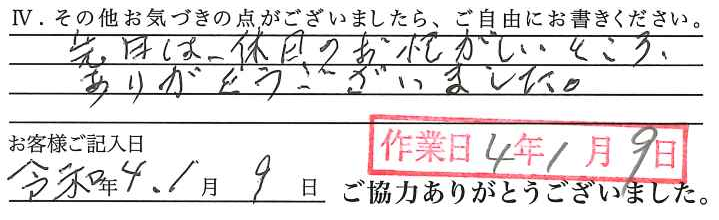 Ⅳ．その他お気づきの点がございましたら、ご自由にお書きください。
先日は、休日のお忙がしいところ、
ありがとうございました。
お客様ご記入日
作業日 4年1月9日
令和年4.1月9日
ご協力ありがとうございました。